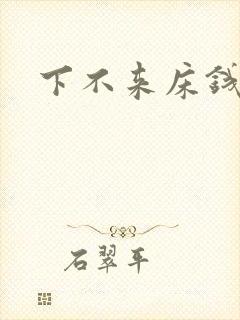 下不来床钱
石翠平